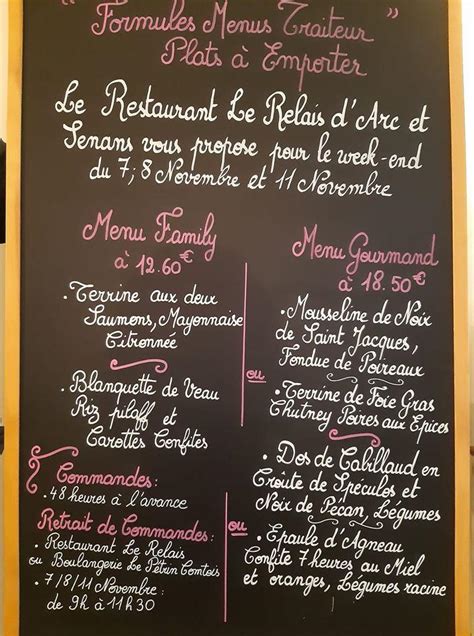 " Formules Menus Traiteur "
Plats à Emporter
Le Restaurant Le Relais d'Arc et
Senans vous propose pour le week-end
du 7; 8 Novembre et 11 Novembre
Menu Family
à 12.60€
• Terrine aux deux
Saumons, Mayonnaise
Citronnée
• Blanquette de Veau
Riz pilaff et
Carottes Confites
Commandes:
• 48 heures à l'avance
Retrait de Commandes:
• Restaurant Le Relais
ou Boulangerie Le Pétrin Comtois
• 7/8/11 Novembre:
de 9h à 11h30
ou
ou
Menu Gourmand
à 18.50€
• Mousseline de Noix
de Saint Jacques,
Fondue de Poireaux
• Terrine de Foie Gras
Chutney Poires aux Epices
• Dos de Cabillaud en
Croûte de Speculos et
Noix de Pécan, Légumes
• Epaule d'Agneau
Confite 7 heures au Miel
et oranges, Légumes racine